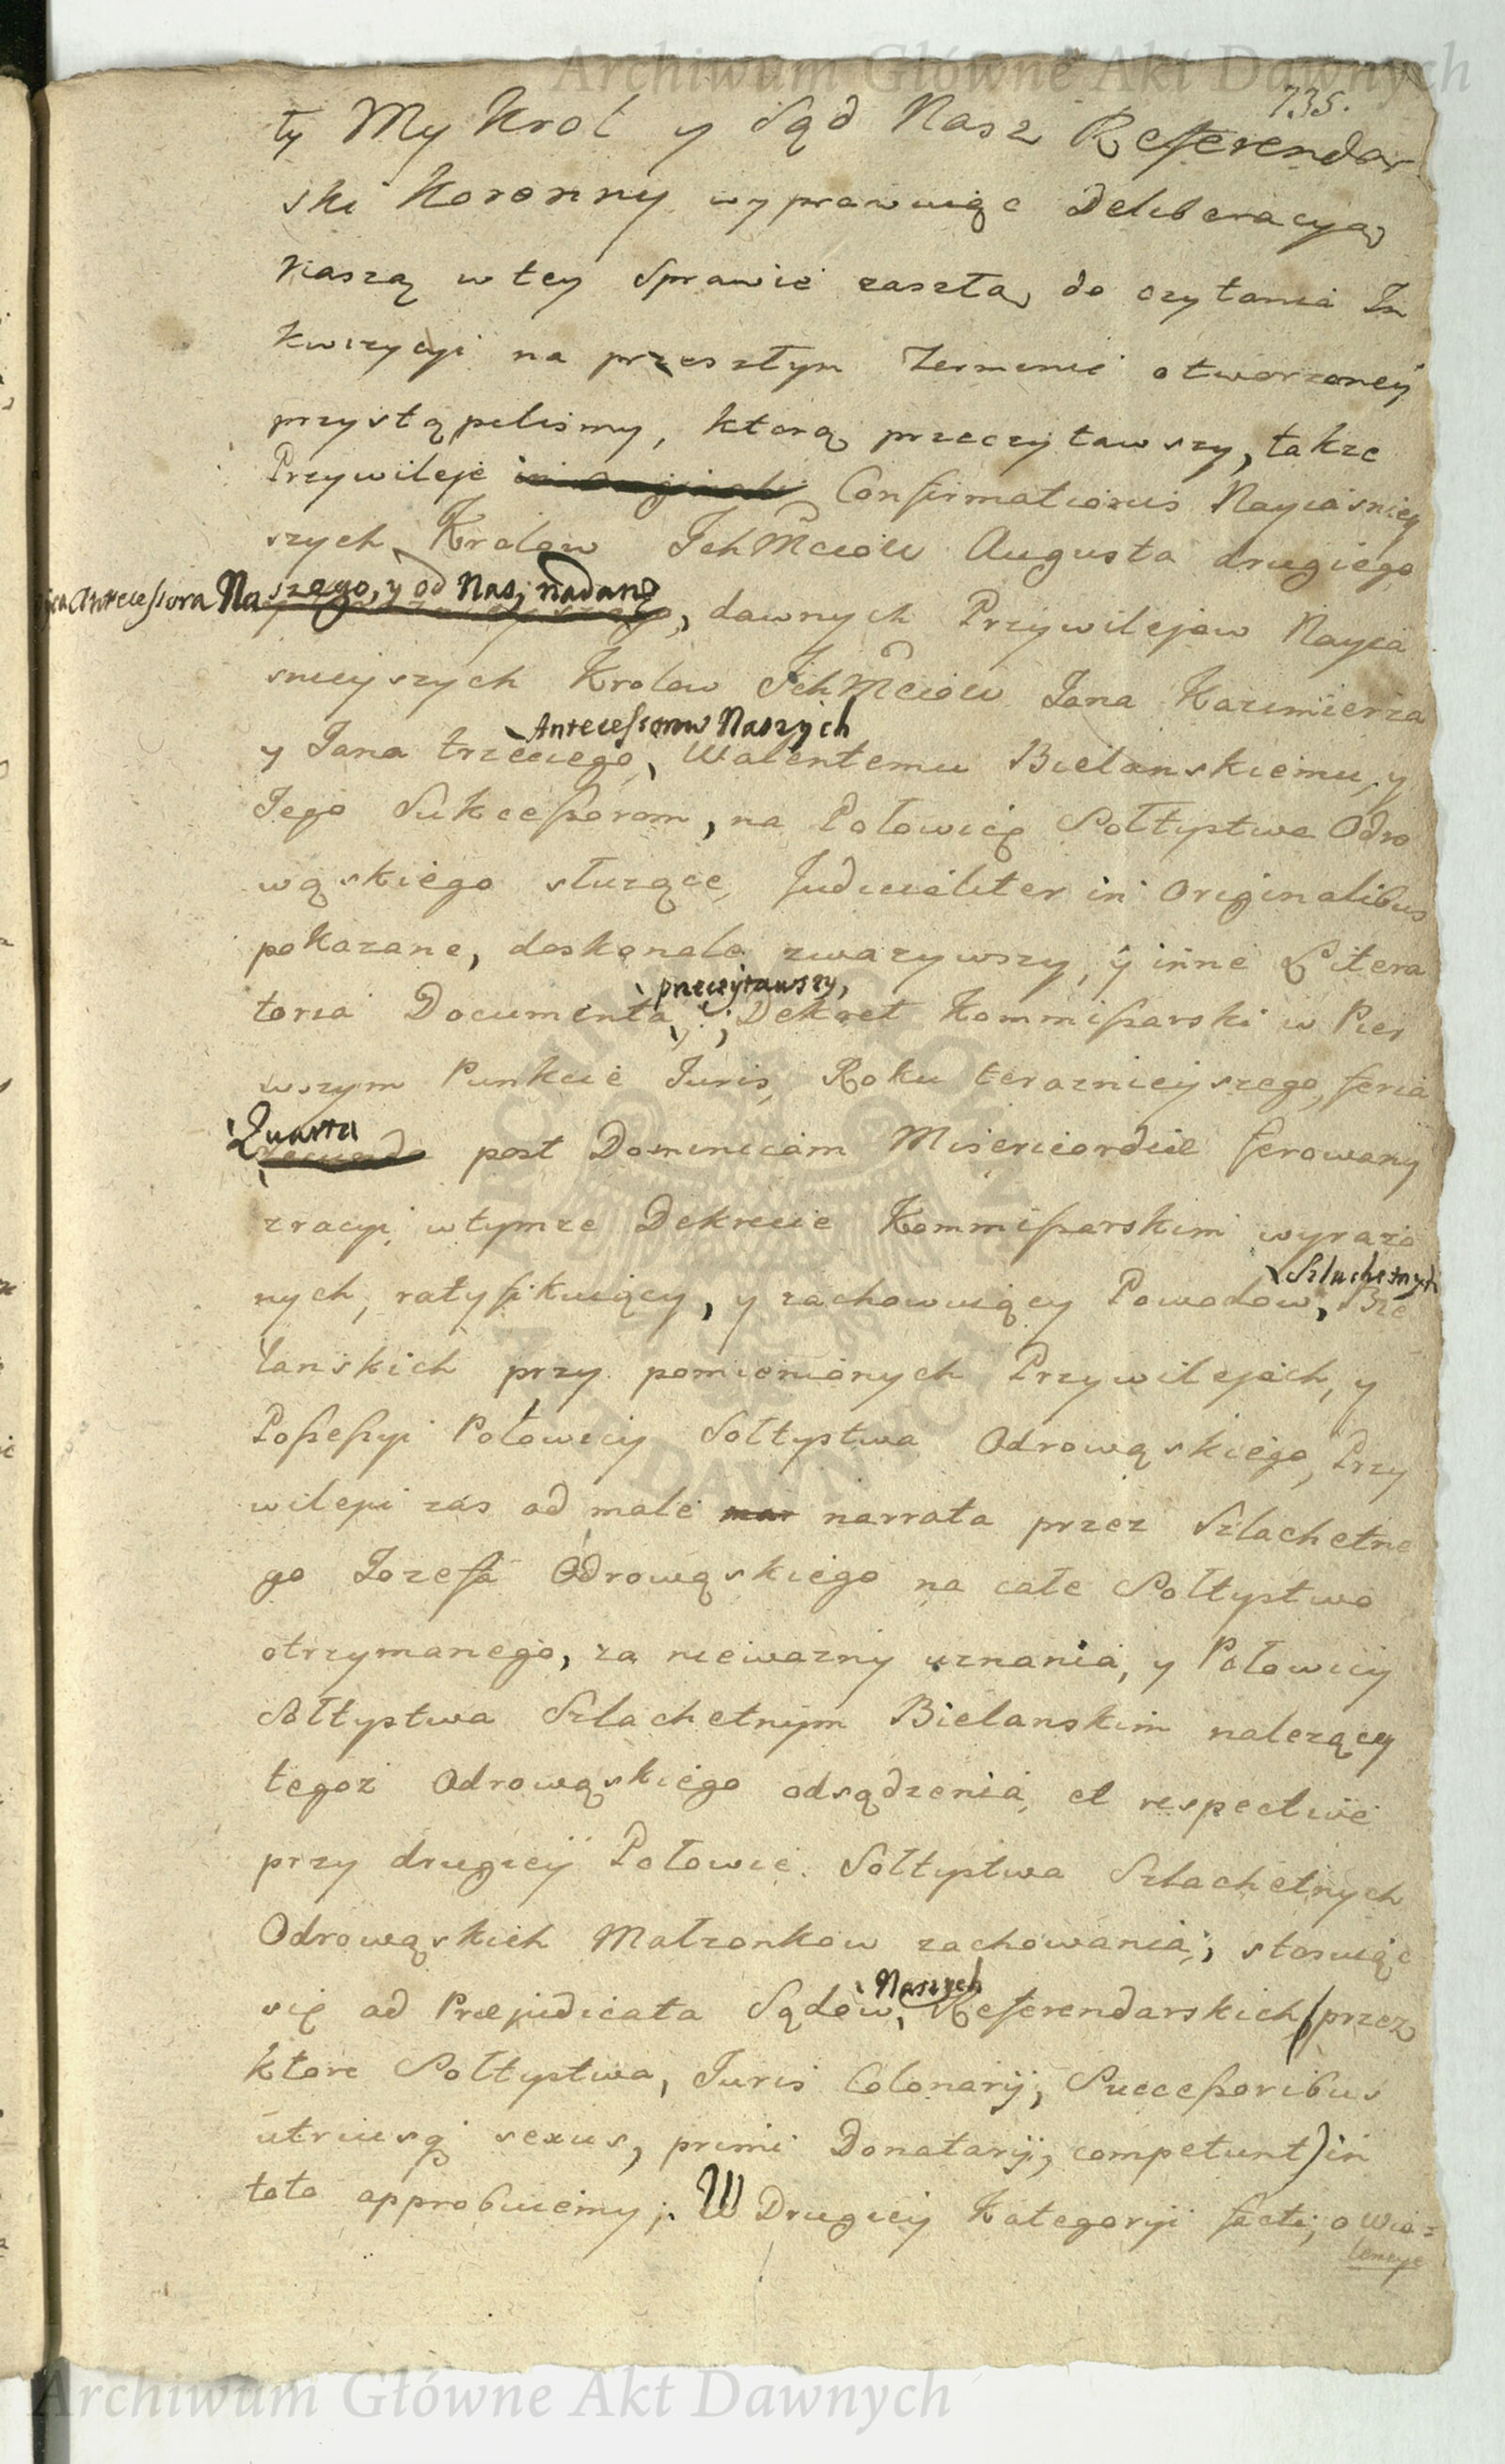 Archiwum Główne Akt Dawnych
735.
ty My Krol y Sąd Nasz Referendar
ski Koronny wyprawuiąc Deliberacyą
Naszą w tey Sprawie zaszłą, do czytania In
kwizycyi na przeszłym Terminie otworzoney
przystąpilismy, ktorą przeczytawszy, takze
Przywileje Confirmationis Nayiasniey
szych Krolow IchMciow Augusta drugiego
Antecessora Naszego, y od Nas, nadane
, dawnych Przywilejow Nayia
snieyszych Krolow IchMciow Jana Kazimierza
Antecessorow Naszych
y Jana trzeciego, Walentemu Bielanskiemu, y
Jego Sukcessorom, na Połowicę Sołtystwa Odro
wąskiego służące, Judicialiter in Originalibus
pokazane, doskonale zwazywszy, y inne Litera
przeczytawszy,
toria Documenta, ; Dekret Kommissarski w Pier
wszym Punkcie Juris, Roku teraznieyszego, feria
Quarta
post Dominicam Misericordiæ ferowany
z racyi w tymze Dekrecie Kommissarskim wyrazo
Szlachetnych
nych, ratyfikuiący, y zachowuiący Powodow, Bie
lanskich przy pomienionych Przywilejach, y
Possessyi Połowicy Sołtystwa Odrowąskiego, Przy
wilepi zas ad male nar narrata przez Szlachetne
go Jozefa Odrowąskiego na całe Sołtystwo
otrzymanego, za niewazny uznania, y Połowicy
Sołtystwa Szlachetnym Bielanskim nalezącey
tegoz Odrowąskiego odsądzenia, et respective
przy drugiey Połowie Sołtystwa Szlachetnych
Odrowąskich Małzonkow zachowania; stosuiąc
Naszych
się ad Præjudicata Sądow, Referendarskich (przez
ktore Sołtystwa, Juris Colonarij, Successoribus
utriusq sexus, primi Donatarij, competunt) in
toto approbuiemy; W Drugiey Kategoryi facti, o Wio-
lencye
ARCHIWUM GŁÓWNE AKT DAWNYCH
Archiwum Główne Akt Dawnych